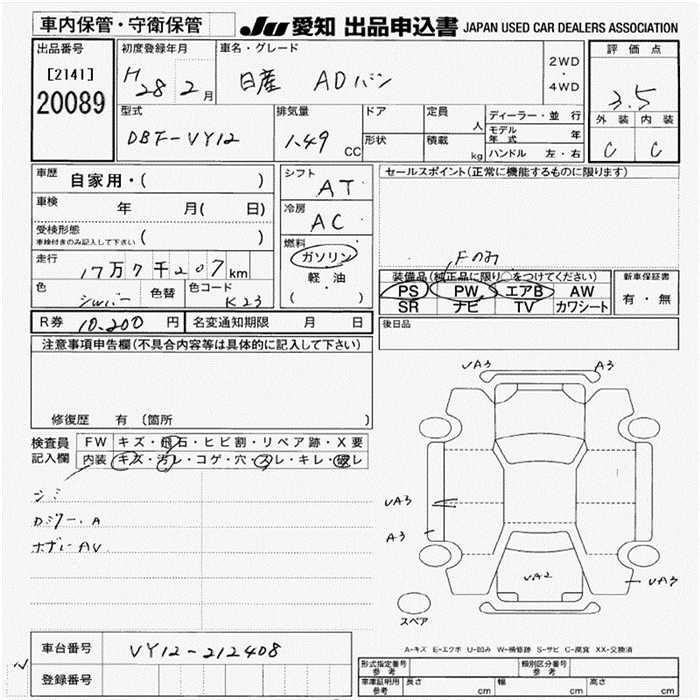 車内保管・守衛保管
JU 愛知 出品申込書 JAPAN USED CAR DEALERS ASSOCIATION
出品番号
[2141]
20089
初度登録年月
H 28 2月
車名・グレード
日産 ADバン
2WD
・
4WD
評価点
3.5
外装 内装
C C
型式
DBF-VY12
排気量
1.49 CC
ドア
形状
定員
人
積載
kg
ディーラー・並行
モデル年式 年
ハンドル 左・右
車歴
自家用・( )
車検
年 月( 日)
受検形態
車検付きのみ記入して下さい ( )
走行
17万7千207km
色
シルバー
色替
色コード
K23
シフト
AT
冷房
AC
燃料
ガソリン
・
軽・油
( )
セールスポイント(正常に機能するものに限ります)
Fのみ
装備品(純正品に限り○をつけてください)
PS PW エアB AW
SR ナビ TV カワシート
新車保証書
有・無
後日品
R券 10,200 円
名変通知期限 月 日
注意事項申告欄(不具合内容等は具体的に記入して下さい)
修復歴 有 〔箇所 〕
検査員
記入欄
FW キズ・飛石・ヒビ割・リペア跡・X要
内装 キズ・汚レ・コゲ・穴・スレ・キレ・破レ
シミ
カジリー.A
ホザレAV
UA3
A3
UA3
A3
UA2
UA3
スペア
A-キズ E-エクボ U-凹み W-補修跡 S-サビ C-腐食 XX-交換済
車台番号
VY12-212408
登録番号
型式指定番号
参考
類別区分番号
参考
車庫証明用
参考
長さ cm
幅 cm
高さ cm